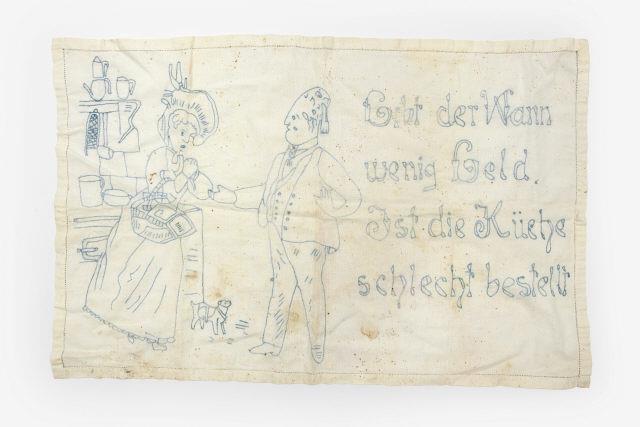 Gibt der Mann
wenig Geld.
Ist die Küche
schlecht bestellt